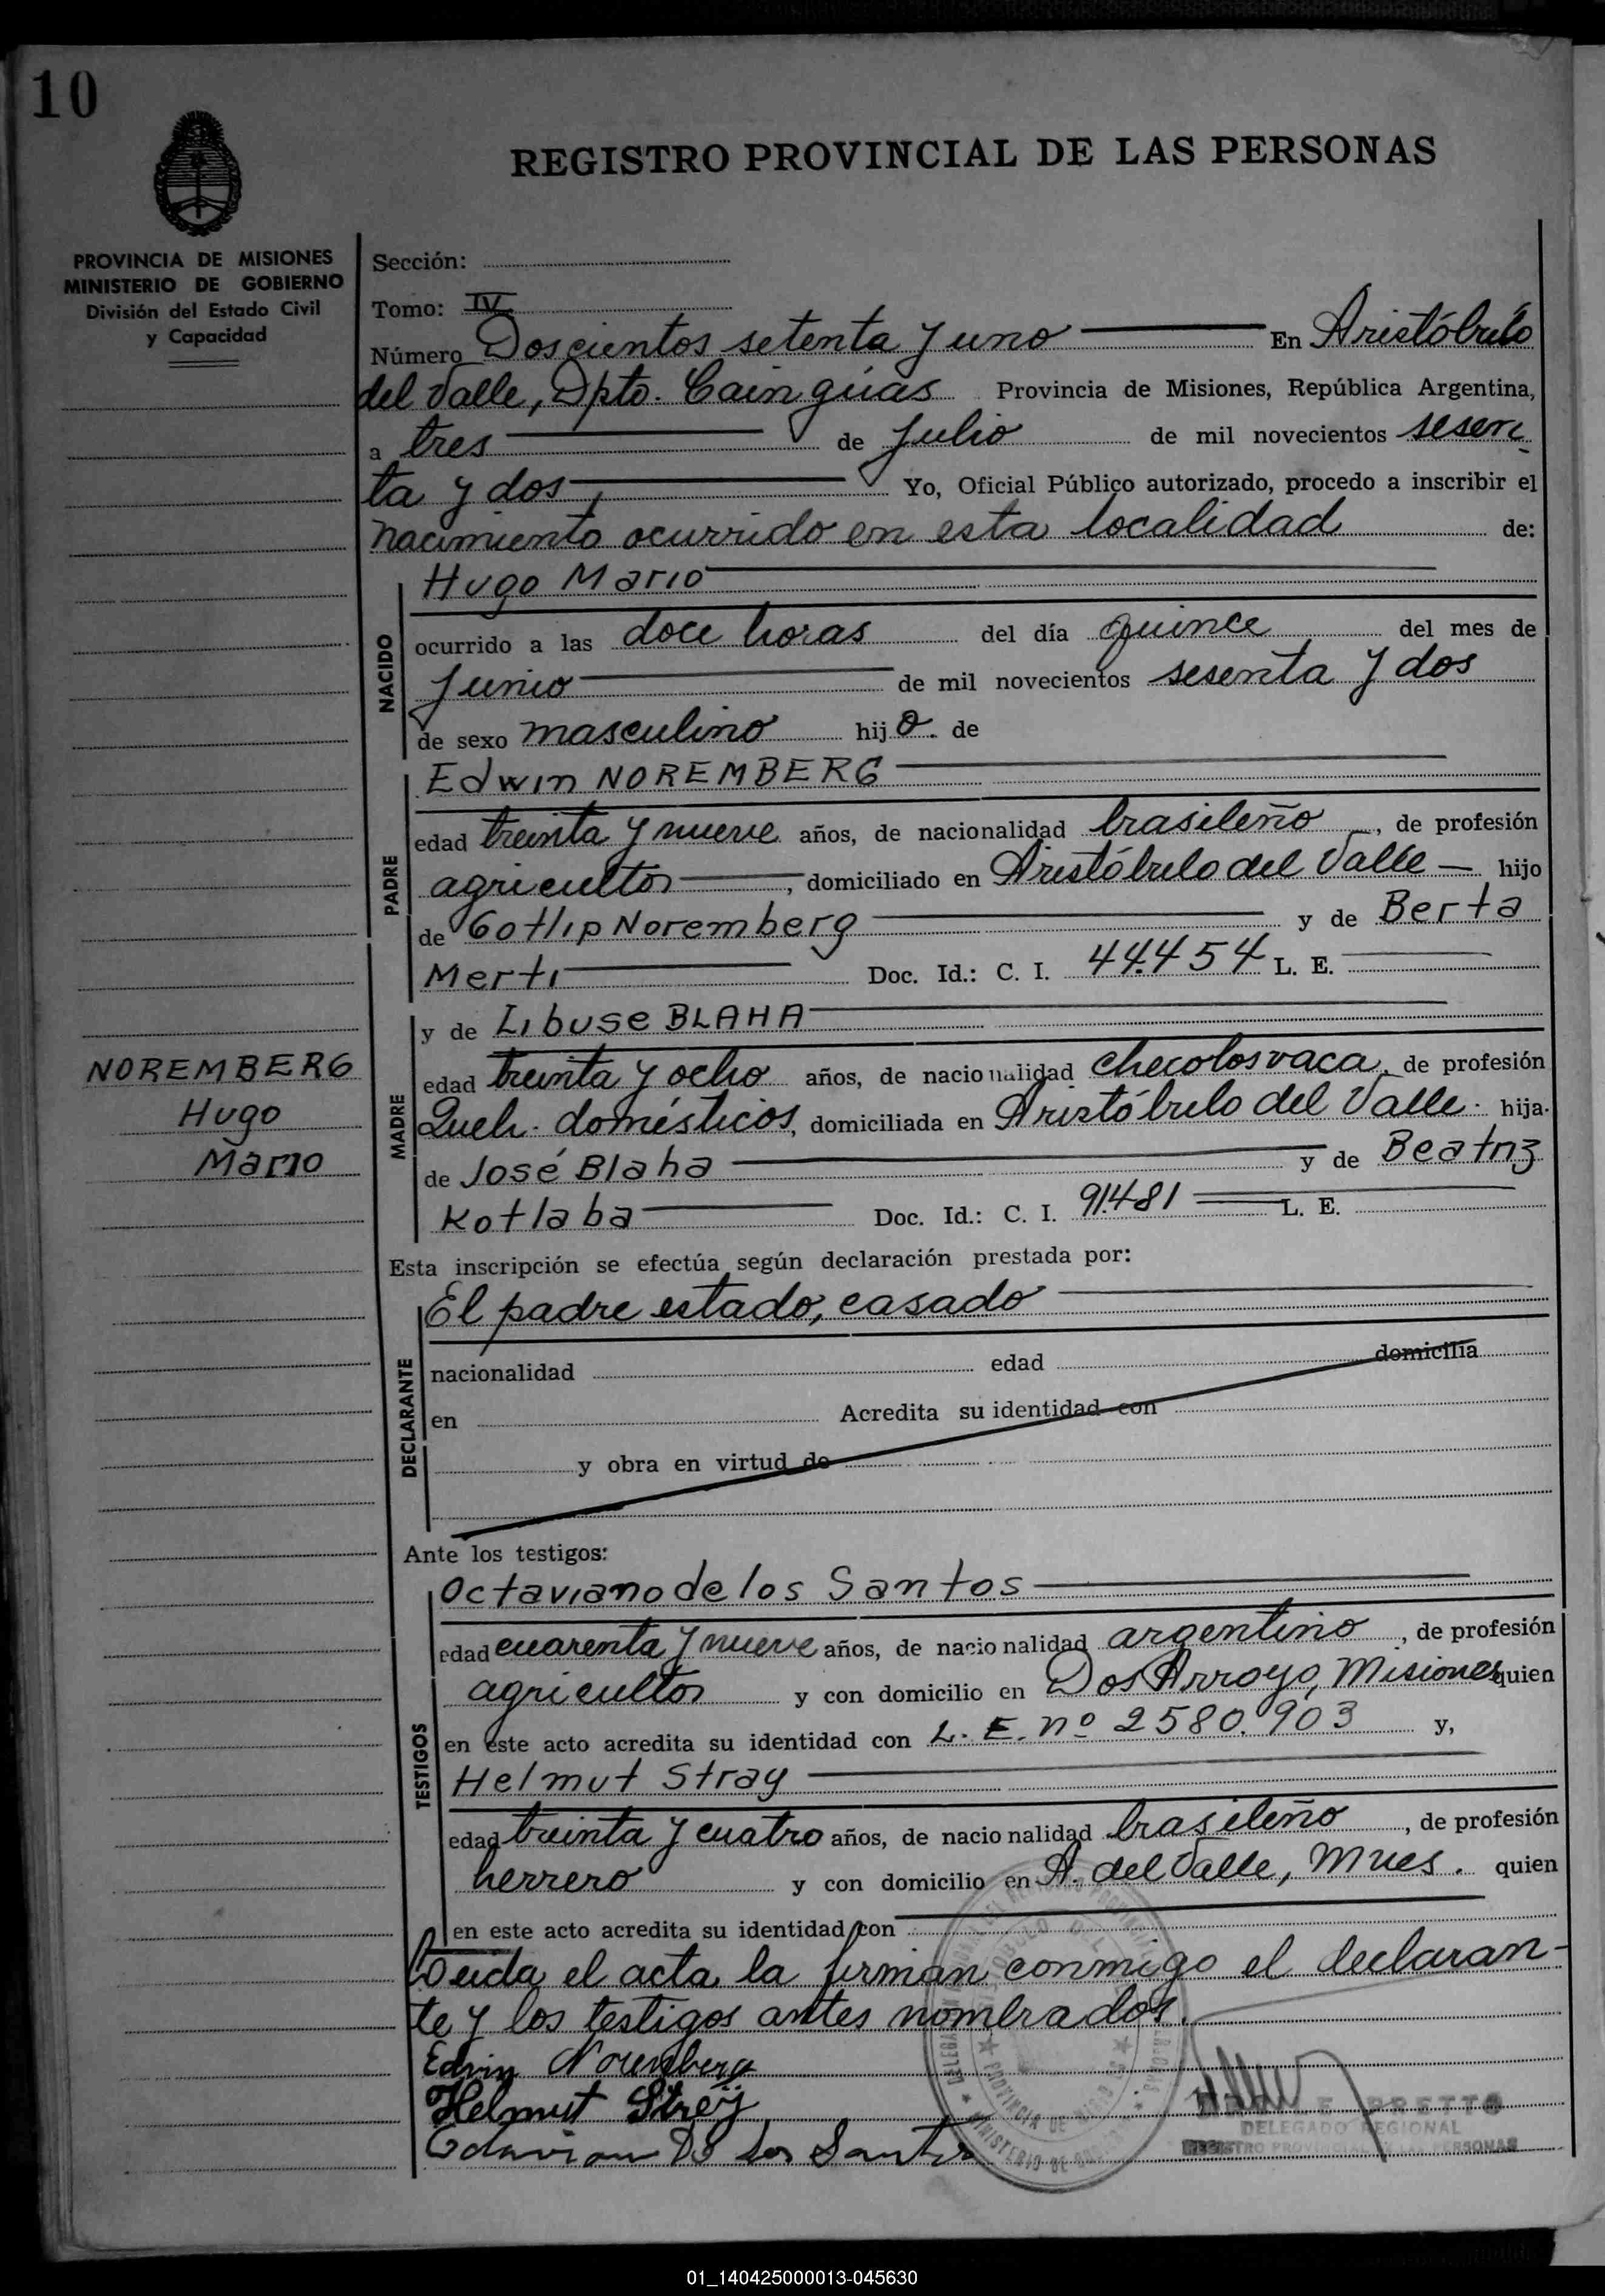 10
REGISTRO PROVINCIAL DE LAS PERSONAS
PROVINCIA DE MISIONES
MINISTERIO DE GOBIERNO
División del Estado Civil
y Capacidad
Sección:
Tomo: IV
Número Doscientos setenta y uno En Aristóbulo
del Valle, Dpto. Cainguas Provincia de Misiones, República Argentina,
a tres de Julio de mil novecientos sesen
ta y dos, Yo, Oficial Público autorizado, procedo a inscribir el
nacimiento ocurrido en esta localidad de:
NACIDO
Hugo Mario
ocurrido a las doce horas del día quince del mes de
Junio de mil novecientos sesenta y dos
de sexo masculino hijo. de
PADRE
Edwin NOREMBERG
edad treinta y nueve años, de nacionalidad brasileño, de profesión
agricultor, domiciliado en Aristóbulo del Valle hijo
de Gotlip Noremberg y de Berta
Merti Doc. Id.: C. I. 44.454 L. E.
MADRE
y de Libuse BLAHA
edad treinta y ocho años, de nacionalidad checolosvaca, de profesión
Queh. domésticos, domiciliada en Aristóbulo del Valle. hija.
de José Blaha y de Beatriz
Kotlaba Doc. Id.: C. I. 91.481 L. E.
NOREMBERG
Hugo
Mario
Esta inscripción se efectúa según declaración prestada por:
DECLARANTE
El padre estado, casado
nacionalidad edad domicilia
en Acredita su identidad con
y obra en virtud de
Ante los testigos:
TESTIGOS
Octaviano de los Santos
edad cuarenta y nueve años, de nacionalidad argentino, de profesión
agricultor y con domicilio en Dos Arroyo, Misiones quien
en este acto acredita su identidad con L. E. nº 2580.903 y,
Helmut Stray
edad treinta y cuatro años, de nacionalidad brasileño, de profesión
herrero y con domicilio en A. del Valle, Mnes. quien
en este acto acredita su identidad con
Leida el acta la firman conmigo el declaran-
te y los testigos antes nombrados.
Edvin Noremberg
Helmut Strey
De los Santos
DELEGADO REGIONAL
REGISTRO PROVINCIAL DE LAS PERSONAS
01_140425000013-045630